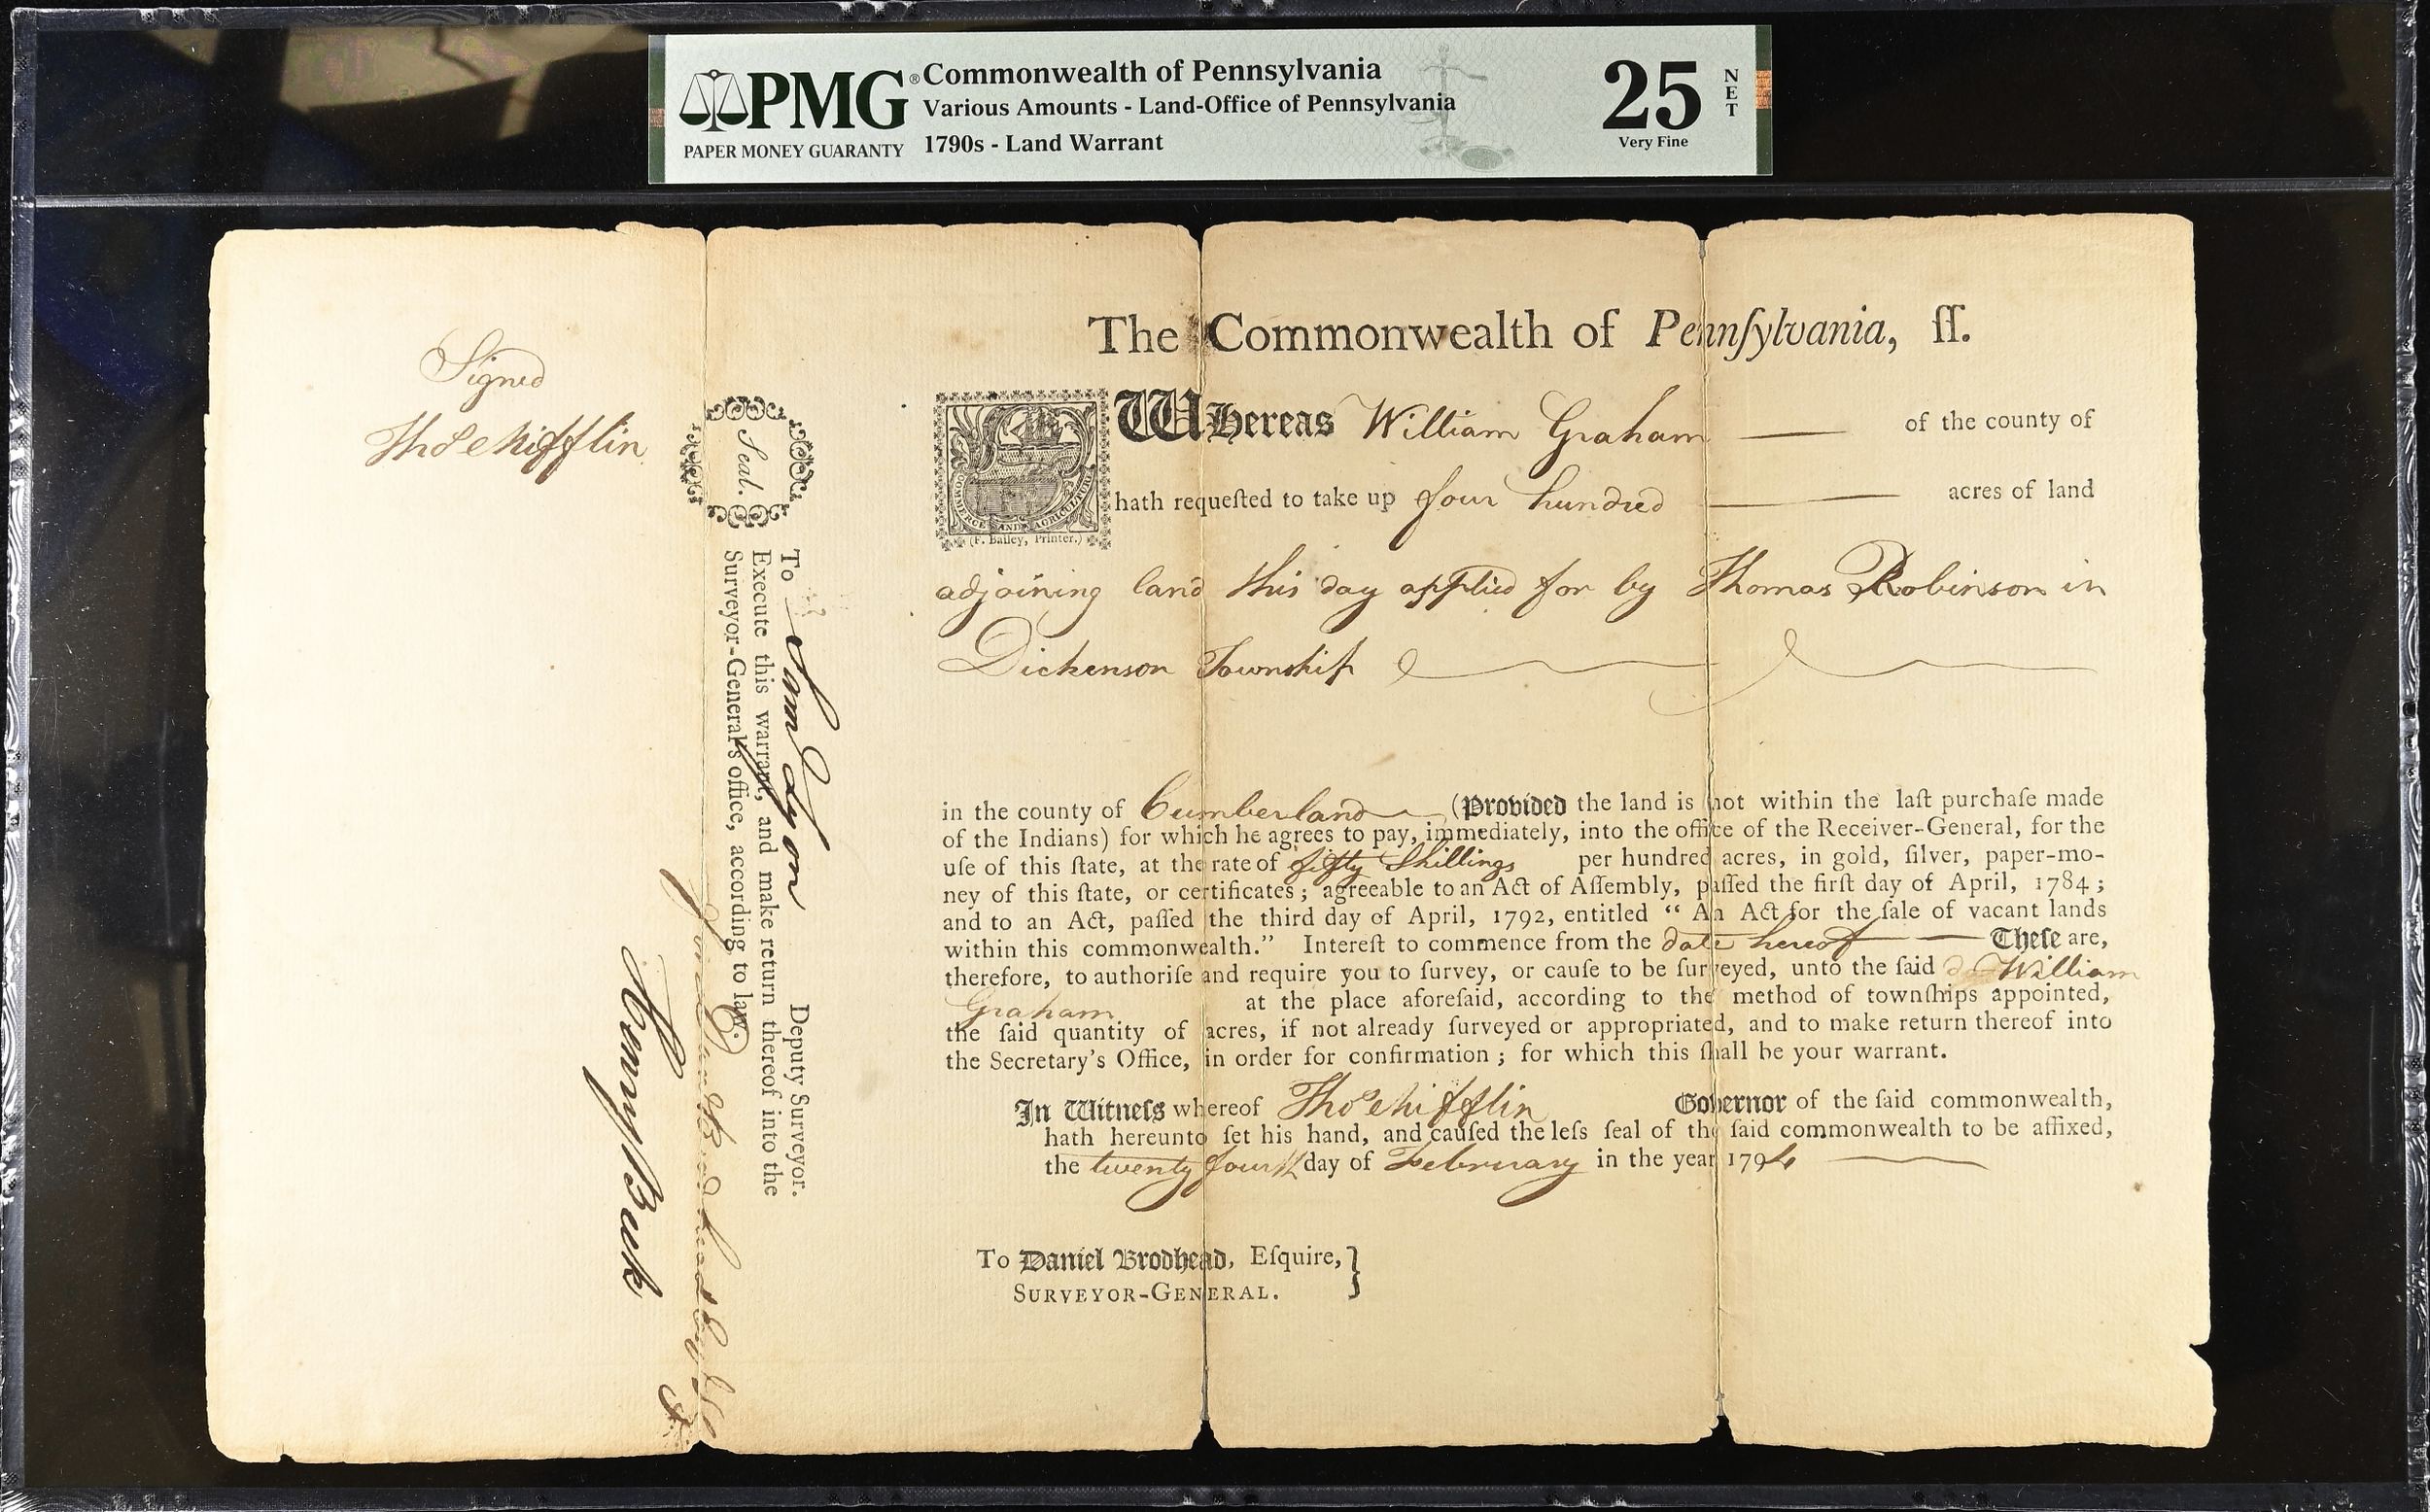 PMG®
PAPER MONEY GUARANTY
Commonwealth of Pennsylvania
Various Amounts - Land-Office of Pennsylvania
1790s - Land Warrant
25
NET
Very Fine
The Commonwealth of Pennſylvania, ſſ.
WHereas William Graham of the county of
hath requeſted to take up four hundred acres of land
COMMERCE AND AGRICULTURE
(F. Bailey, Printer.)
adjoining land this day applied for by Thomas Robinson in
Dickenson Township
in the county of Cumberland (Provided the land is not within the laſt purchaſe made
of the Indians) for which he agrees to pay, immediately, into the office of the Receiver-General, for the
uſe of this ſtate, at the rate of fifty Shillings per hundred acres, in gold, ſilver, paper-mo-
ney of this ſtate, or certificates; agreeable to an Act of Aſſembly, paſſed the firſt day of April, 1784;
and to an Act, paſſed the third day of April, 1792, entitled “ An Act for the ſale of vacant lands
within this commonwealth.” Intereſt to commence from the date hereof Theſe are,
therefore, to authoriſe and require you to ſurvey, or cauſe to be ſurveyed, unto the ſaid William
Graham at the place aforeſaid, according to the method of townſhips appointed,
the ſaid quantity of acres, if not already ſurveyed or appropriated, and to make return thereof into
the Secretary's Office, in order for confirmation; for which this ſhall be your warrant.
In Witneſs whereof Thos Mifflin Governor of the ſaid commonwealth,
hath hereunto ſet his hand, and cauſed the leſs ſeal of the ſaid commonwealth to be affixed,
the twenty fourth day of February in the year 1794
To Daniel Brodhead, Eſquire,}
SURVEYOR-GENERAL.
Signed
Thos Mifflin
Seal.
To Sam Lyon Deputy Surveyor.
Execute this warrant, and make return thereof into the
Surveyor-General's office, according to law.
Brodhead
Henry Beck